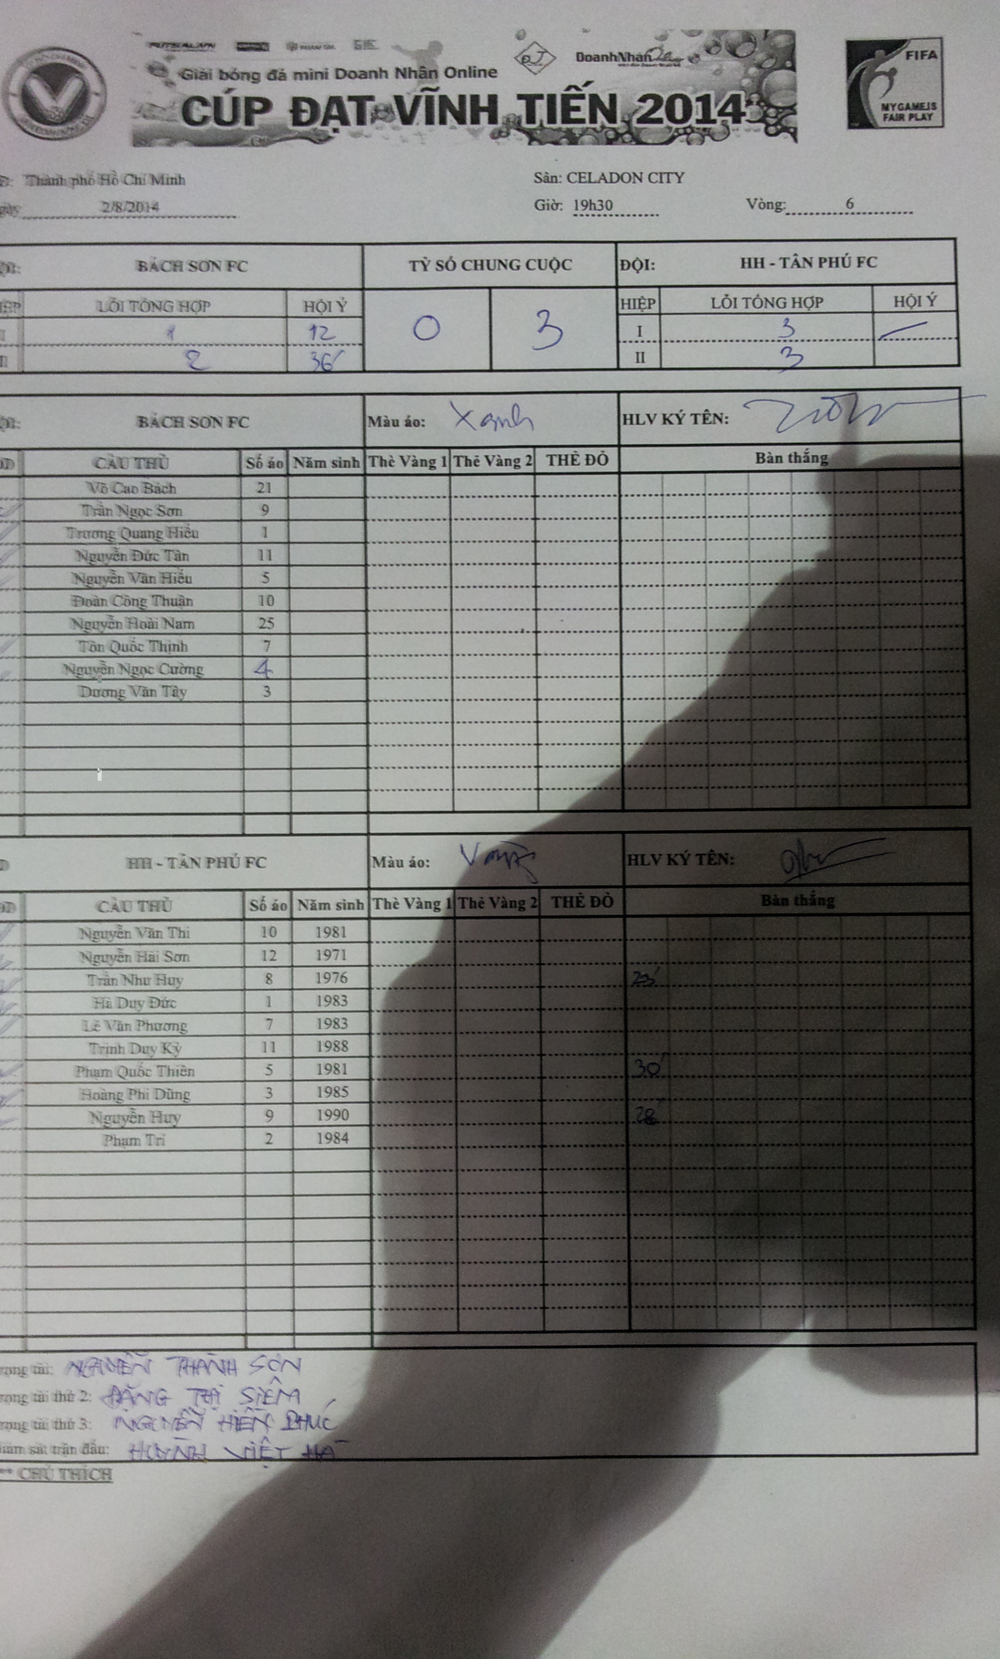 FUTSAL.VN
DoanhNhân
Giải bóng đá mini Doanh Nhân Online
CÚP ĐẠT VĨNH TIẾN 2014
FIFA
MY GAME IS
FAIR PLAY
Thành phố Hồ Chí Minh Sân: CELADON CITY
2/8/2014 Giờ: 19h30 Vòng: 6
BÁCH SƠN FC TỶ SỐ CHUNG CUỘC ĐỘI: HH - TÂN PHÚ FC
LỖI TỔNG HỢP HỘI Ý 0 3 HIỆP LỖI TỔNG HỢP HỘI Ý
1 12 I 3
2 36' II 3
BÁCH SƠN FC Màu áo: Xanh HLV KÝ TÊN:
CẦU THỦ Số áo Năm sinh Thẻ Vàng 1 Thẻ Vàng 2 THẺ ĐỎ Bàn thắng
Võ Cao Bách 21
Trần Ngọc Sơn 9
Trương Quang Hiếu 1
Nguyễn Đức Tân 11
Nguyễn Văn Hiếu 5
Đoàn Công Thuận 10
Nguyễn Hoài Nam 25
Tôn Quốc Thịnh 7
Nguyễn Ngọc Cường 4
Dương Văn Tây 3
HH - TÂN PHÚ FC Màu áo: Vàng HLV KÝ TÊN:
CẦU THỦ Số áo Năm sinh Thẻ Vàng 1 Thẻ Vàng 2 THẺ ĐỎ Bàn thắng
Nguyễn Văn Thi 10 1981
Nguyễn Hải Sơn 12 1971
Trần Như Huy 8 1976 23'
Hà Duy Đức 1 1983
Lê Văn Phương 7 1983
Trịnh Duy Kỳ 11 1988
Phạm Quốc Thiên 5 1981 30'
Hoàng Phi Dũng 3 1985
Nguyễn Huy 9 1990 28'
Phạm Trí 2 1984
trọng tài: NGUYỄN THÀNH SƠN
trọng tài thứ 2: ĐẶNG THỊ SIÊM
trọng tài thứ 3: NGUYỄN HIỀN PHÚC
Giám sát trận đấu: HUỲNH VIỆT HÀ
** CHÚ THÍCH